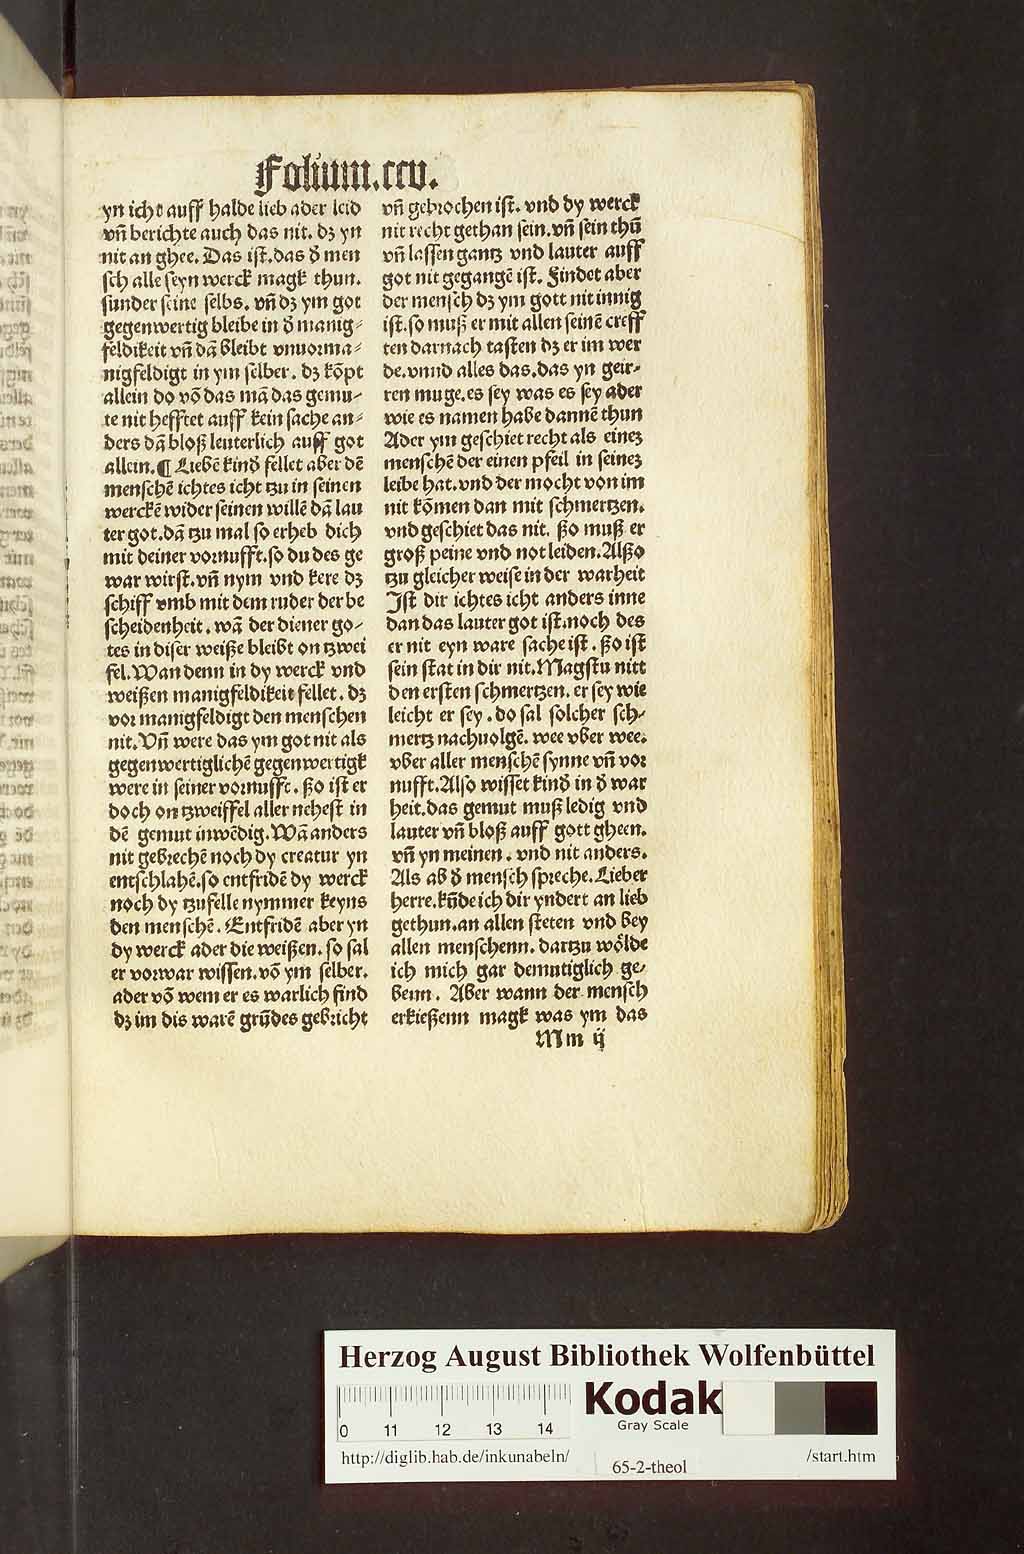 Folium.ccv.
yn icht auff halde lieb ader leid
vñ berichte auch das nit. dz yn
nit an ghee. Das ist. das đ men
sch alle seyn werck magk thun.
sunder seine selbs. vñ dz ym got
gegenwertig bleibe in đ manig-
feldikeit vñ dã bleibt vnuorma-
nigfeldigt in ym selber. dz kõpt
allein do võ das mã das gemu-
te nit hefftet auff kein sache an-
ders dã bloß leuterlich auff got
allein.¶ Liebẽ kinđ fellet aber dẽ
menschẽ ichtes icht tzu in seinen
werckẽ wider seinen willẽ dã lau
ter got. dã tzu mal so erheb dich
mit deiner vornufft. so du des ge
war wirst. vñ nym vnd kere dz
schiff vmb mit dem ruder der be
scheidenheit. wã der diener go-
tes in diser weiße bleibt on tzwei
fel. Wan denn in dy werck vnd
weißen manigfeldikeit fellet. dz
vor manigfeldigt den menschen
nit. Vñ were das ym got nit als
gegenwertiglichẽ gegenwertigk
were in seiner vornufft. ßo ist er
doch on tzweiffel aller nehest in
dẽ gemut inwẽdig. Wã anders
nit gebrechẽ noch dy creatur yn
entschlahẽ. so entfridẽ dy werck
noch dy tzufelle nymmer keyns
den menschẽ. Entfridẽ aber yn
dy werck ader die weißen. so sal
er vorwar wissen. võ ym selber.
ader võ wem er es warlich find
dz im dis warẽ grũdes gebricht
vñ gebrochen ist. vnd dy werck
nit recht gethan sein. vñ sein thũ
vñ lassen gantz vnd lauter auff
got nit gegangẽ ist. Findet aber
der mensch dz ym gott nit innig
ist. so muß er mit allen seinẽ creff
ten darnach tasten dz er im wer
de. vnnd alles das. das yn geir-
ren muge. es sey was es sey ader
wie es namen habe dannẽ thun
Ader ym geschiet recht als einez
menschẽ der einen pfeil in seinez
leibe hat. vnd der mocht von im
nit kõmen dan mit schmertzen.
vnd geschiet das nit. ßo muß er
groß peine vnd not leiden. Alßo
tzu gleicher weise in der warheit
Ist dir ichtes icht anders inne
dan das lauter got ist. noch des
er nit eyn ware sache ist. ßo ist
sein stat in dir nit. Magstu nitt
den ersten schmertzen. er sey wie
leicht er sey. do sal solcher sch-
mertz nachuolgẽ. wee vber wee.
vber aller menschẽ synne vñ vor
nufft. Also wisset kinđ in đ war
heit. das gemut muß ledig vnd
lauter vñ bloß auff gott gheen.
vñ yn meinen. vnd nit anders.
Als ab đ mensch spreche. Lieber
herre. kũde ich dir yndert an lieb
gethun. an allen steten vnd bey
allen menschenn. dartzu wölde
ich mich gar demutiglich ge-
benn. Aber wann der mensch
erkießenn magk was ym das
Mm ij
Herzog August Bibliothek Wolfenbüttel
0 11 12 13 14
Kodak
Gray Scale
http://diglib.hab.de/inkunabeln/
65-2-theol
/start.htm